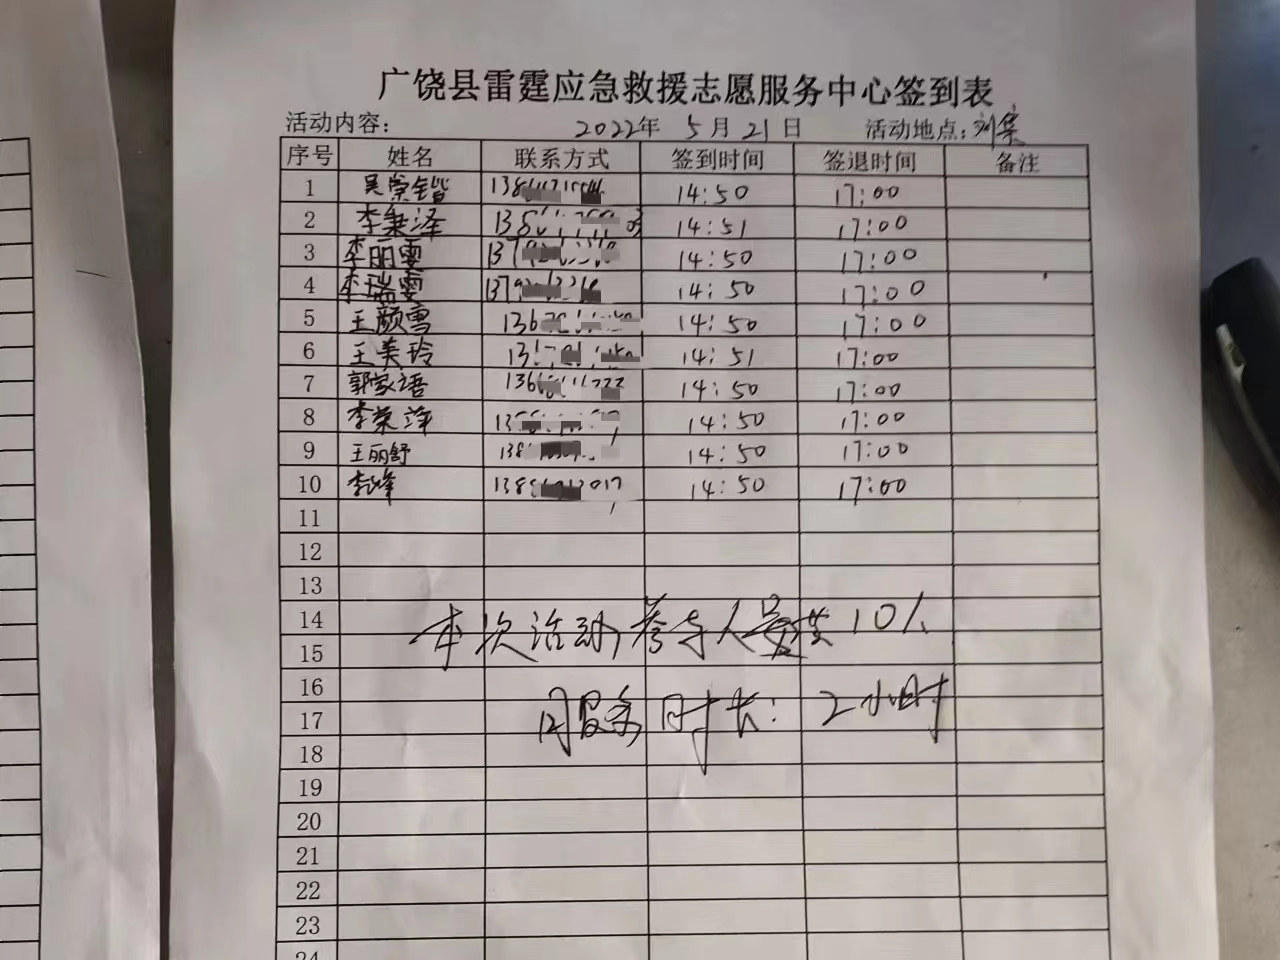 广饶县雷霆应急救援志愿服务中心签到表
活动内容： 2022年 5月21日 活动地点：刘集
序号 姓名 联系方式 签到时间 签退时间 备注
1 吴崇锴 14:50 17:00
2 李秉泽 14:51 17:00
3 李丽雯 14:50 17:00
4 李瑞雯 14:50 17:00
5 王颜雪 14:50 17:00
6 王美玲 14:51 17:00
7 郭家语 14:50 17:00
8 李荣萍 14:50 17:00
9 王丽舒 14:50 17:00
10 李峰 14:50 17:00
11
12
13
14
本次活动参与人员共10人
15
16
17
服务时长：2小时
18
19
20
21
22
23
24